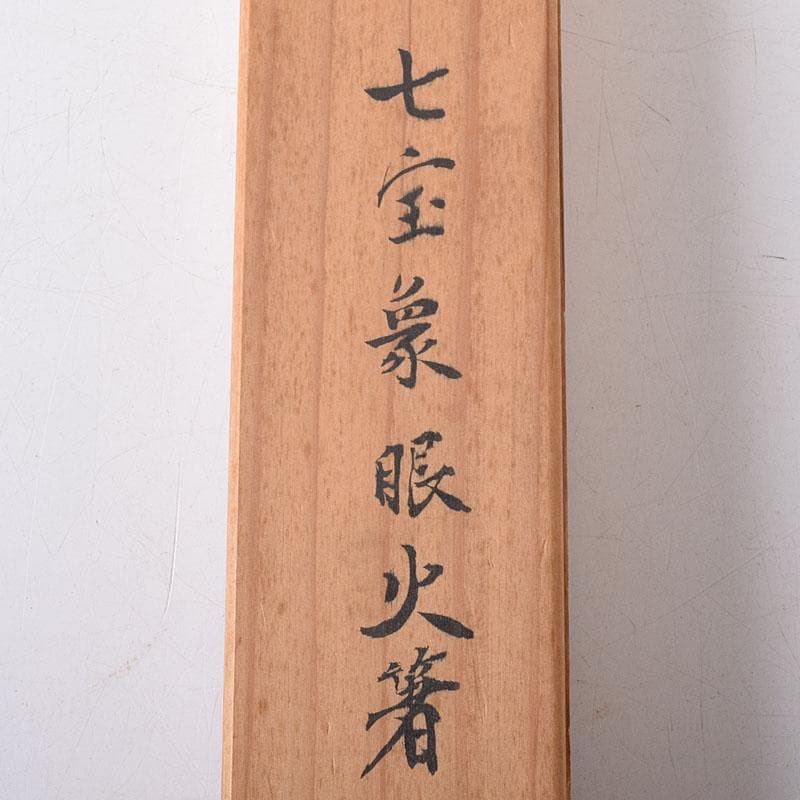 七宝象眼火箸